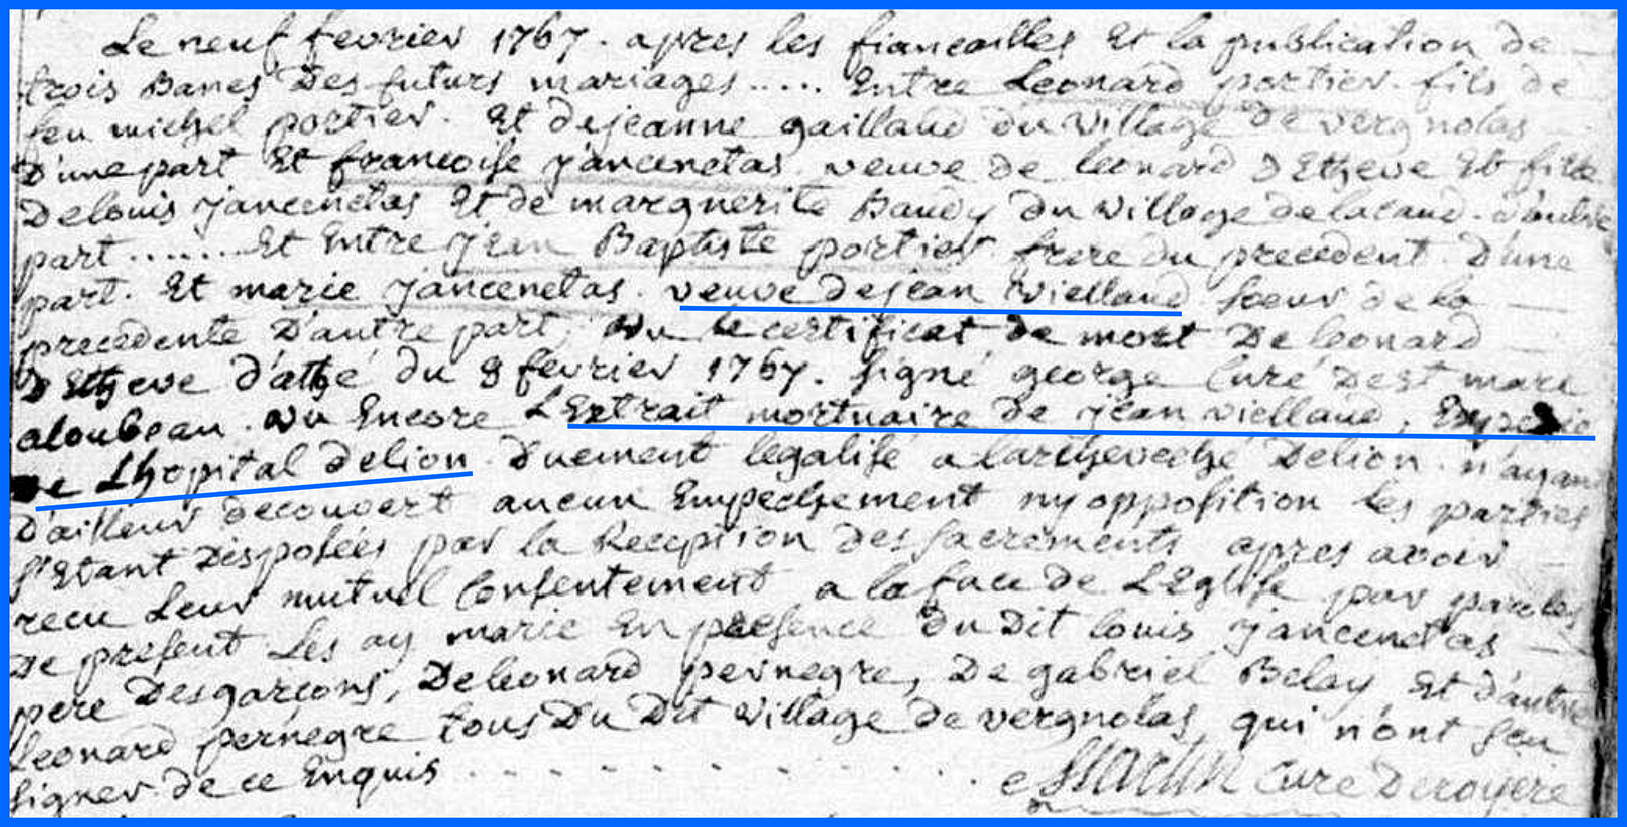 Le neuf fevrier 1767. apres les fiancailles Et la publication de
trois Bancs Des futurs mariages ..... Entre Leonard portier. fils de
feu michel portier. Et dejeanne gaillaud du village de vergnolas
D'une part Et francoise jancenetas. veuve de leonard DEtheve Et fille
Delouis jancenetas Et de marguerite Baudy du village de lacaud. d'autre
part ....... Et Entre jean Baptiste portier frere du precedent. D'une
part. Et marie jancenetas. veuve dejean viellaud soeur de la
precedente D'autre part, vu le certificat de mort De leonard
DEtheve d'athé du 8 fevrier 1767. signé george Curé De st marc
aloubeau. vu Encore L'Extrait mortuaire de jean viellaud,
de Lhopital delion Duement legalisé a larchevêché Delion. n'ayan
D'ailleur decouvert aucun Empechement ny opposition les parties
s'Etant Disposées par la Reception des sacrements apres avoir
recu Leur mutuel Consentement a la face de L'Eglise par paroles
De present Les ay marie En presence Du Dit louis jancenetas
pere Desgarcons, Deleonard pernegre, De gabriel Belay, Et d'autre
Leonard pernegre tous Du Dit village de vergnolas, qui n'ont sçu
signer de ce Enquis . . . . . . . . . . Martin Curé Deroyere